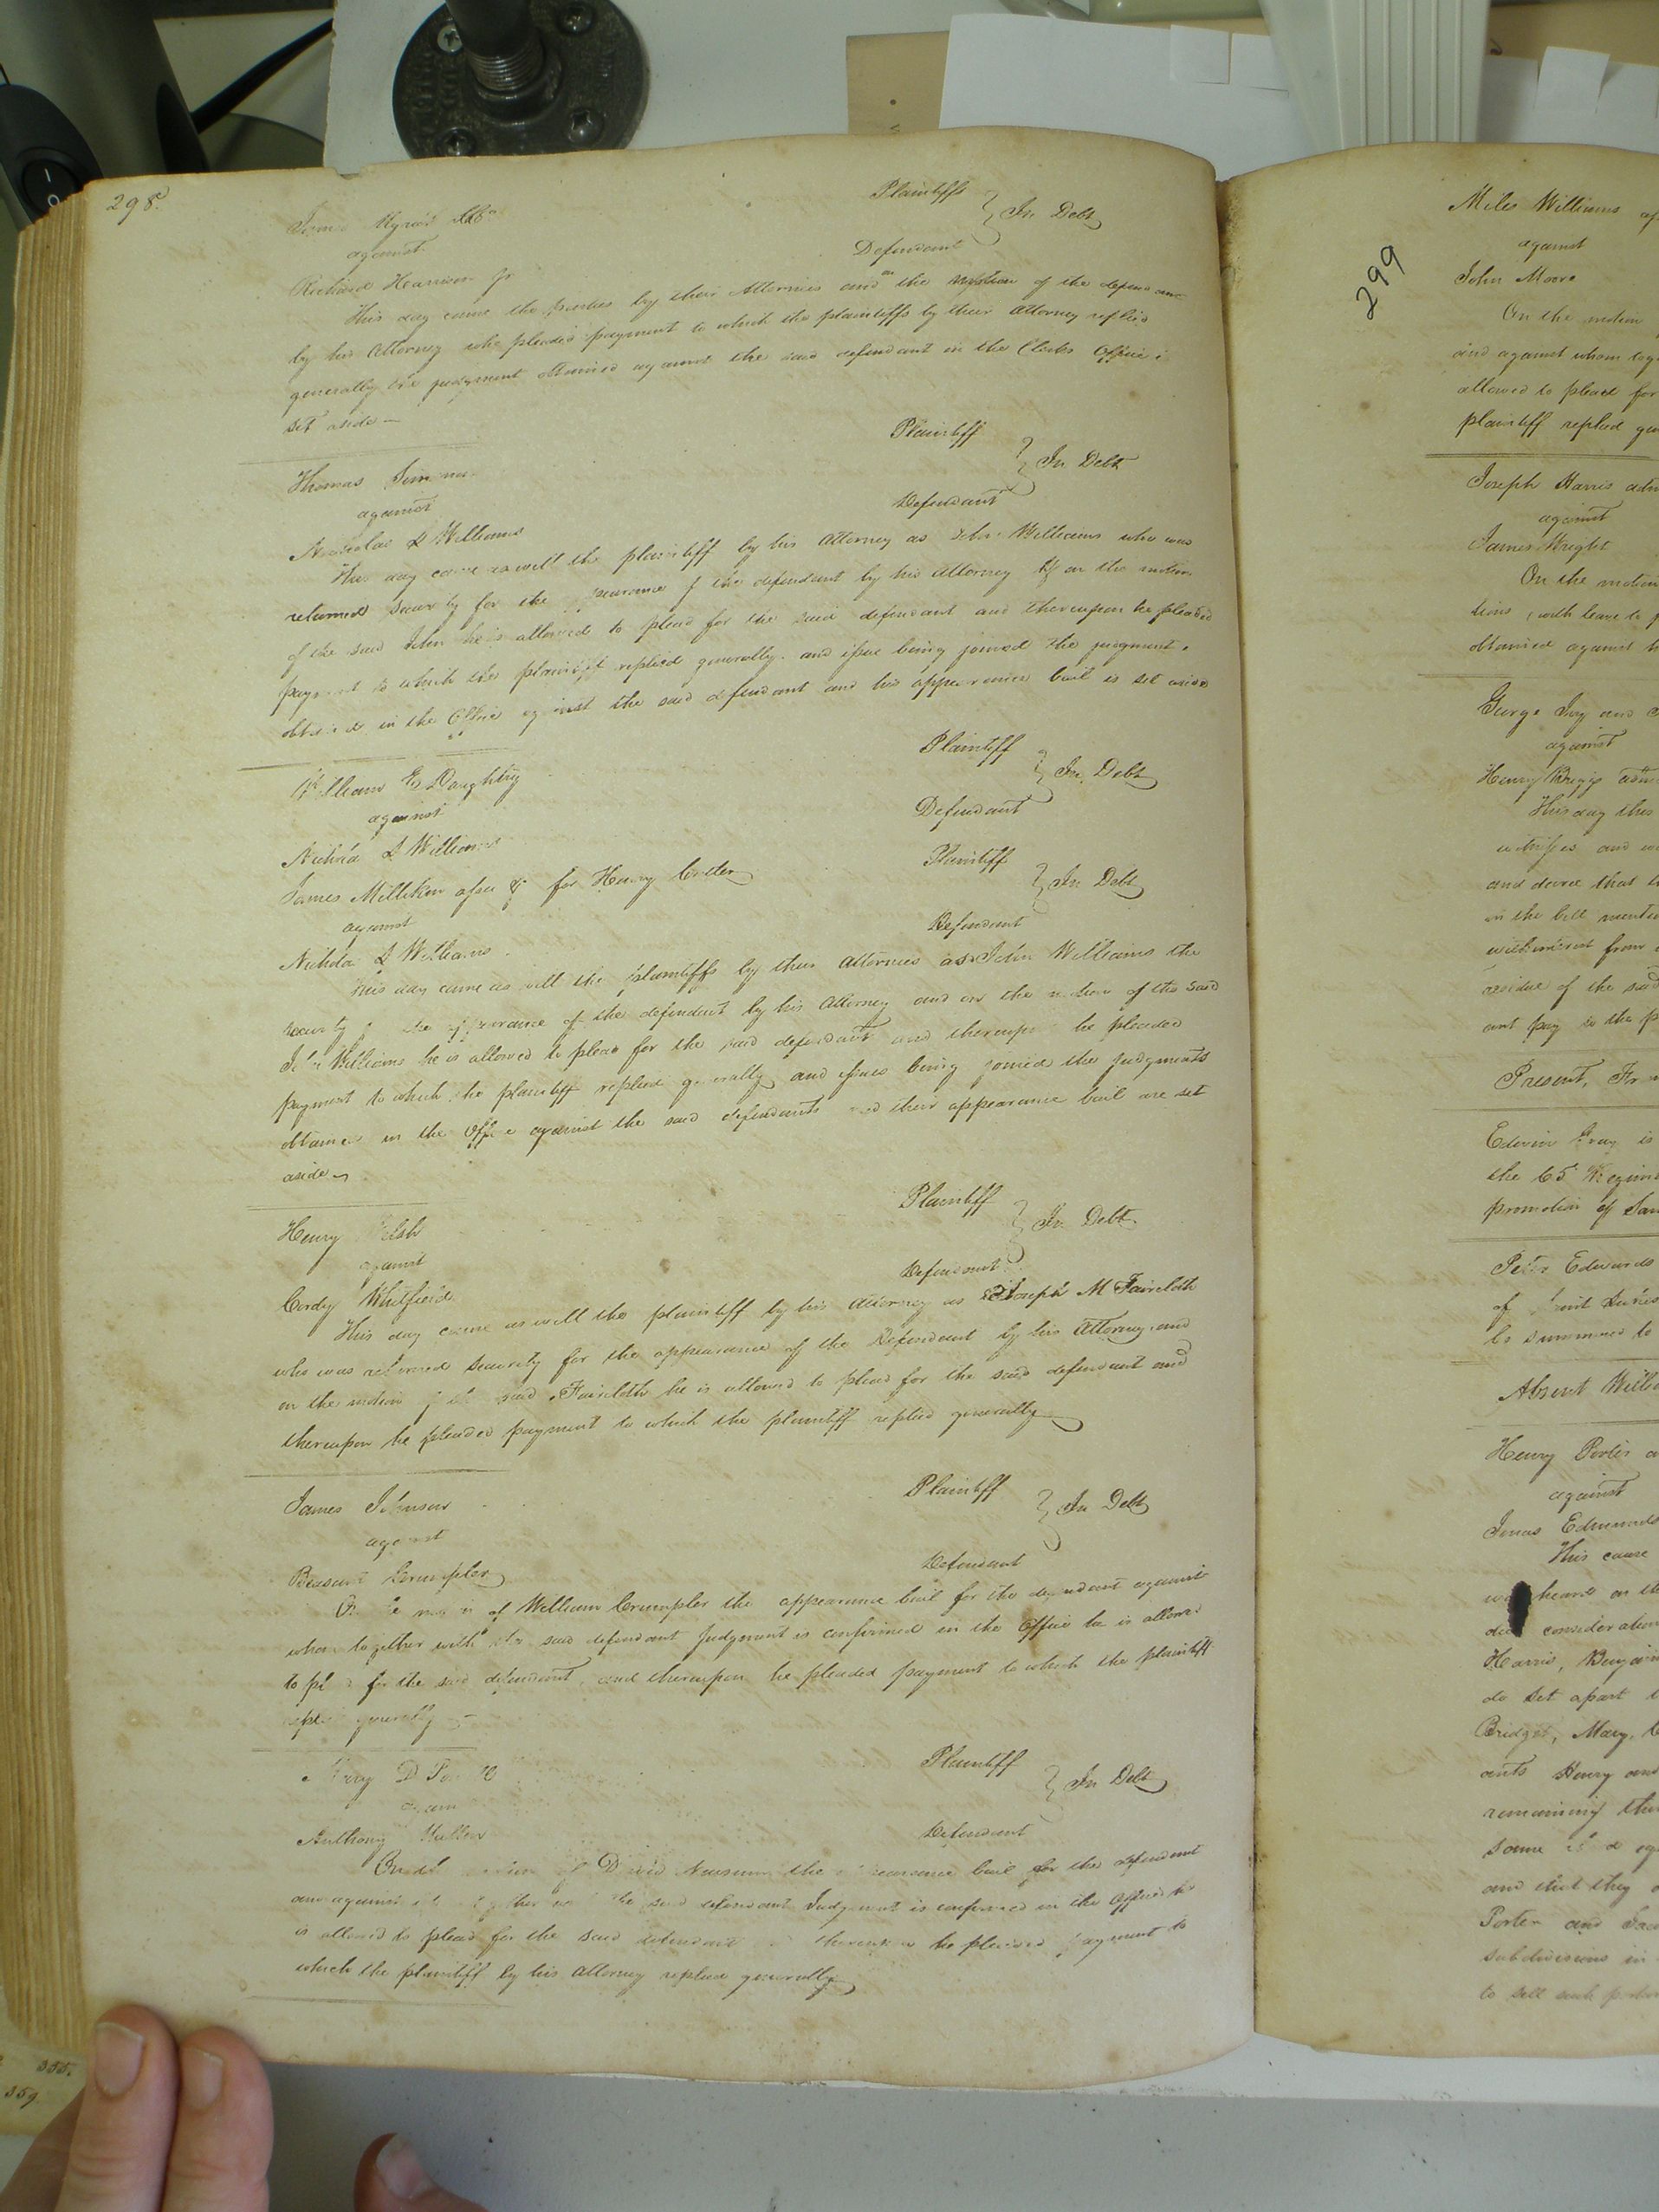 298.
James &Co Plaintiffs
against In Debt
Richard Harrison Jr Defendant
This day came the parties by their Attornies and on the motion of the defendant
by his Attorney who pleaded payment to which the plaintiffs by their attorney replied
generally the judgment obtained against the said defendant in the Clerks Office is
set aside —
Thomas Plaintiff
against In Debt
Nicholas L Williams Defendant
This day came as well the plaintiff by his Attorney as John Williams who was
returned security for the appearance of the defendant by his Attorney & on the motion
of the said John he is allowed to plead for the said defendant and thereupon he pleaded
payment to which the plaintiff replied generally. and issue being joined the judgment
obtained in the Office against the said defendant and his appearance bail is set aside
William E Daughtry Plaintiff
against In Debt
Nichola L Williams Defendant
James Milliken assee &c for Henry Plaintiff
against In Debt
Nichola L Williams Defendant
This day came as well the plaintiffs by their Attornies as John Williams the
security for the appearance of the defendant by his Attorney and on the motion of the said
John Williams he is allowed to plead for the said defendant and thereupon he pleaded
payment to which the plaintiff replied generally and issues being joined the judgments
obtained in the Office against the said defendants and their appearance bail are set
aside
Henry Plaintiff
against In Debt
Cordy Whitfield Defendant
This day came as well the plaintiff by his Attorney as Joseph M Faircloth
who was returned security for the appearance of the Defendant by his Attorney and
on the motion of the said Faircloth he is allowed to plead for the said defendant and
thereupon he pleaded payment to which the plaintiff replied generally
James Johnson Plaintiff
against In Debt
Beasant Crumpler Defendant
On the motion of William Crumpler the appearance bail for the defendant against
whom together with the said defendant Judgment is confirmed in the Office he is allowed
to plead for the said defendant, and thereupon he pleaded payment to which the plaintiff
replied generally —
D Plaintiff
against In Debt
Anthony Defendant
On the motion of David Newsum the appearance bail for the defendant
and against whom together with the said defendant Judgment is confirmed in the Office he
is allowed to plead for the said defendant and thereupon he pleaded payment to
which the plaintiff by his Attorney replied generally
355.
359
299
Miles Williams
against
John Moore
On the motion
and against whom tog
allowed to plead for
plaintiff replied gen
Joseph Harris adm
against
James Wright
On the motion
tions, with leave to
obtained against
George Ivy and
against
Henry Briggs
This day this
witnesses and
and decree that
in the bill menti
with interest from
residue of the said
ant pay to the p
Present,
Edwin Gray is
the 65 Regim
promotion of Sam
Peter Edwards
of
be summoned to
Absent Willi
Henry Porter
against
Jonas Edmunds
This cause
heard on the
consideration
Harris, Benjamin
do set apart
Bridget, Mary,
ants Henry and
remaining
same
and that they
Porter and
subdivisions in
to sell such